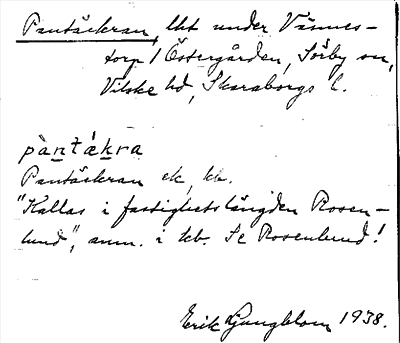 Pantåckran, lht under Vännes-
torp 1 Östergården, Sörby sn,
Vilske hd, Skaraborgs l.
pàntákra
Pantåckran ek, kb.
"Kallas i fastighetslängden Rosen-
lund", anm. i kb. Se Rosenlund!
Erik Ljungblom 1938.